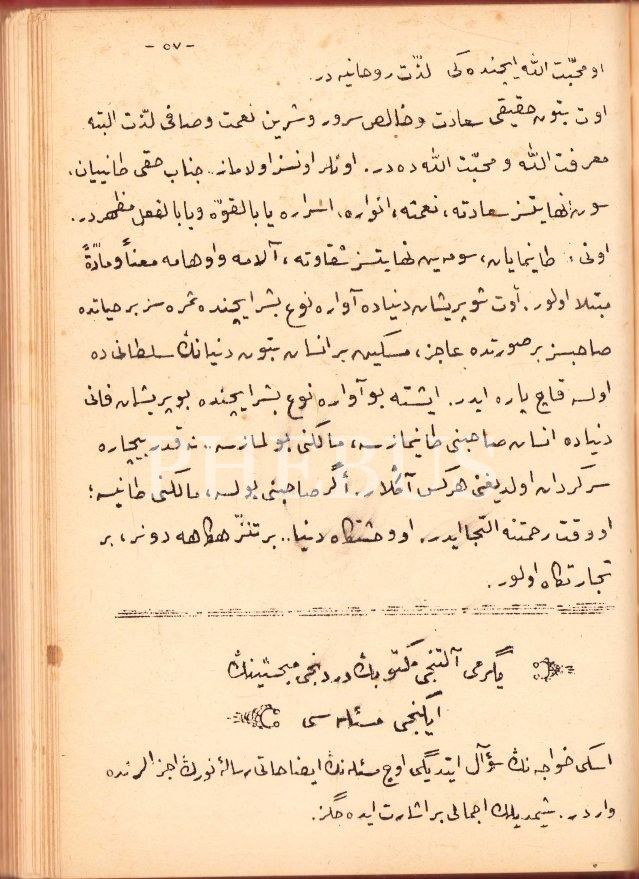 - ٥٧ -
او محبّت الله ایچنده کی لذّت روحانیه در.
اوت بتون حقیقی سعادت و خالص سرور و شرین نعمت و صافی لذّت البته
معرفت الله و محبّت الله ده در. اونلر اونسز اولاماز.. جناب حقی طانییان،
سون نهایتسز سعادته، نعمته، انواره، اسراره یا بالقوّه ویا بالفعل مظهر در.
اونی طانیمایان، سومین نهایتسز شقاوته، آلامه و اوهامه معناً و مادّةً
مبتلا اولور. اوت شو پریشان دنیاده آواره نوع بشر ایچنده ثمره سز بر حیاتده
صاحبسز بر صورتده عاجز، مسکین بر انسان بتون دنیانڭ سلطانی ده
اولسه قاچ پاره ایدر. ایشته بو آواره نوع بشر ایچنده بو پریشان فانی
دنیاده انسان صاحبنی طانیمازسه، مالکنی بولمازسه.. نه قدر بیچاره
سرکردان اولدیغنی هرکس آڭلار. اگر صاحبنی بولسه، مالکنی طانیسه؛
او وقت رحمتنه التجا ایدر. او وحشتگاه دنیا.. بر تنزّهگاهه دونر، بر
تجارتگاه اولور.
یگرمی آلتنجی مکتوبڭ دردنجی مبحثینڭ
ایکنجی مسئله سی
اسکی خواجه نڭ سؤال ایتدیگی اوچ مسئله نڭ ایضاحاتی رسالۀ نورڭ اجزالرنده
وار در. شیمدیلك اجمالی بر اشارت ایده جگز.
PHEBUS